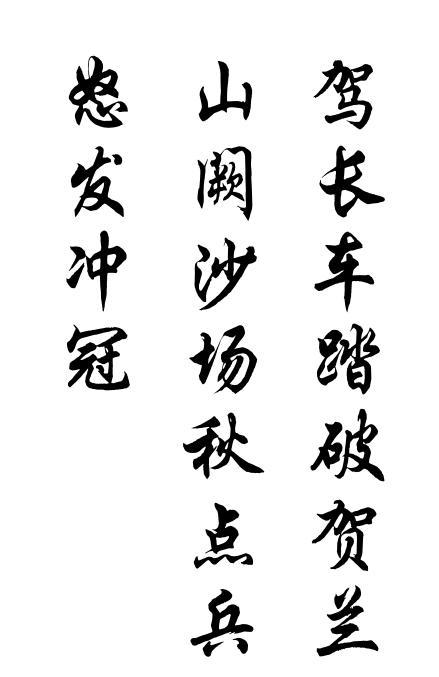 驾长车踏破贺兰
山阙沙场秋点兵
怒发冲冠